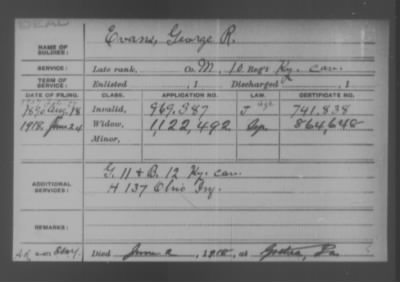 DEAD
Evans, George R.
NAME OF SOLDIER:
SERVICE: Late rank, Co. M, 10 Reg't Ky. Cav.
TERM OF SERVICE: Enlisted , 1 Discharged , 1
DATE OF FILING. CLASS. APPLICATION NO. LAW. CERTIFICATE NO.
1890 Aug. 18 Invalid, 969,387 J 741,838
1918, June 24 Widow, 1,122,492 864,648
Minor,
ADDITIONAL SERVICES:
G. 11 & B. 12 Ky. Cav.
H 137 Ohio Inf.
REMARKS:
Died June 2, 1918, at